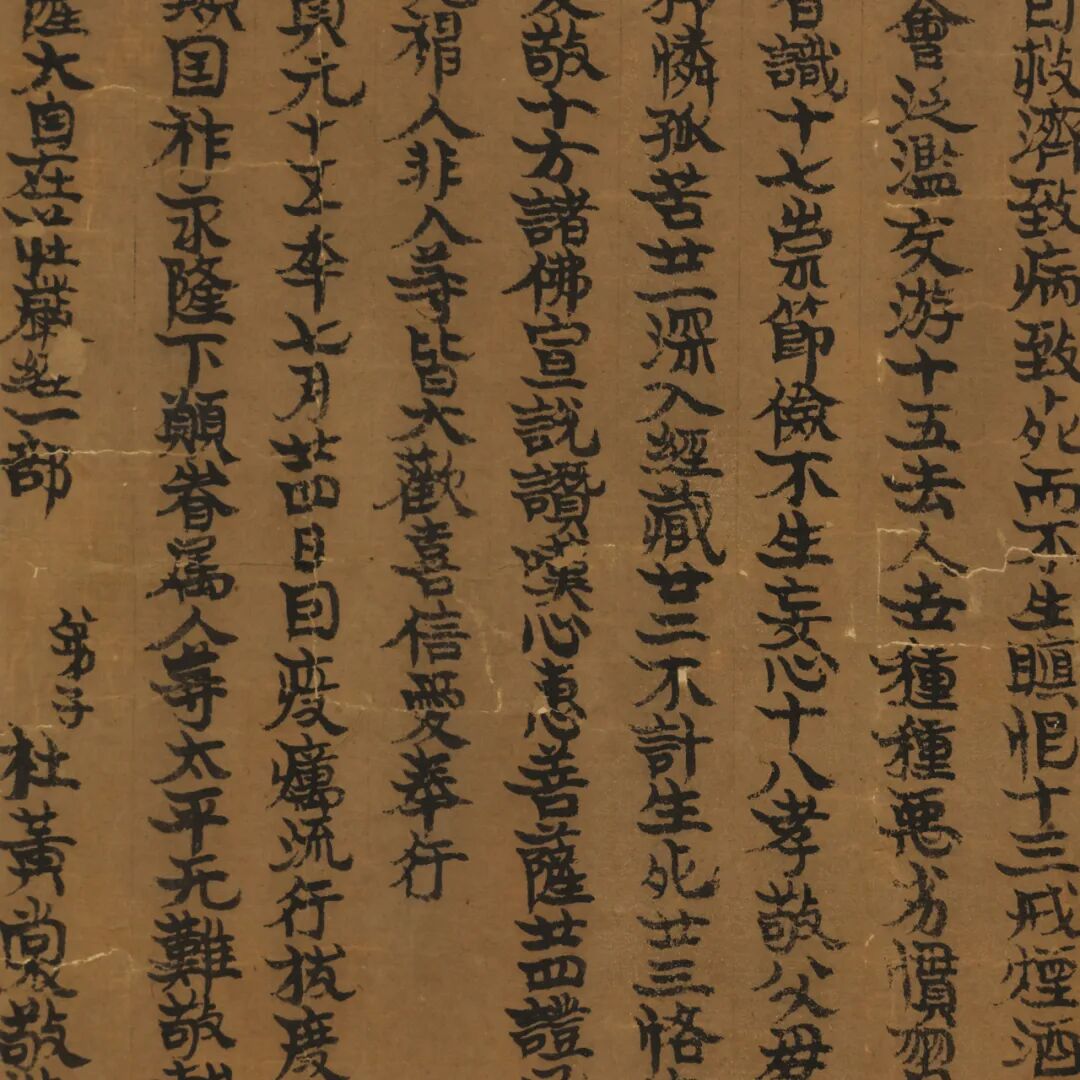 自救濟致病致死而不生瞋怉十三戒煙酒
會泛濫友游十五去人世種種惡劣慣
識十七崇節儉不生妄心十八孝敬父母
憐孤苦廿一深入經藏廿二不計生死廿三恪
敬十方諸佛宣説讚嘆心惠菩薩廿四證
人非人等皆大歡喜信受奉行
貞元十五年七月廿四日因疫癘流行拔度
国祚永隆下願眷属人等太平无難敬
薩大自在莊嚴經一部
弟子
杜黃裳敬